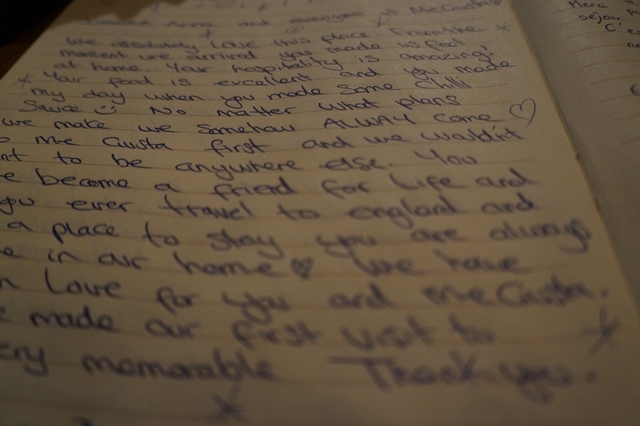 and everyone at Me Gusta
We absolutely love this place. From the
moment we arrived you made us feel
at home. Your hospitality is amazing!
Your food is excellent and you made
my day when you made some Chilli
Sauce ☺ No matter what plans
we make we somehow ALWAY come ♡
Me Gusta first and we wouldn't
to be anywhere else. You
become a friend for life and
you ever travel to england and
a place to stay you are always
in our home ♡ We have
Love for you and Me Gusta.
made our first visit to
memorable Thank you.
Merci